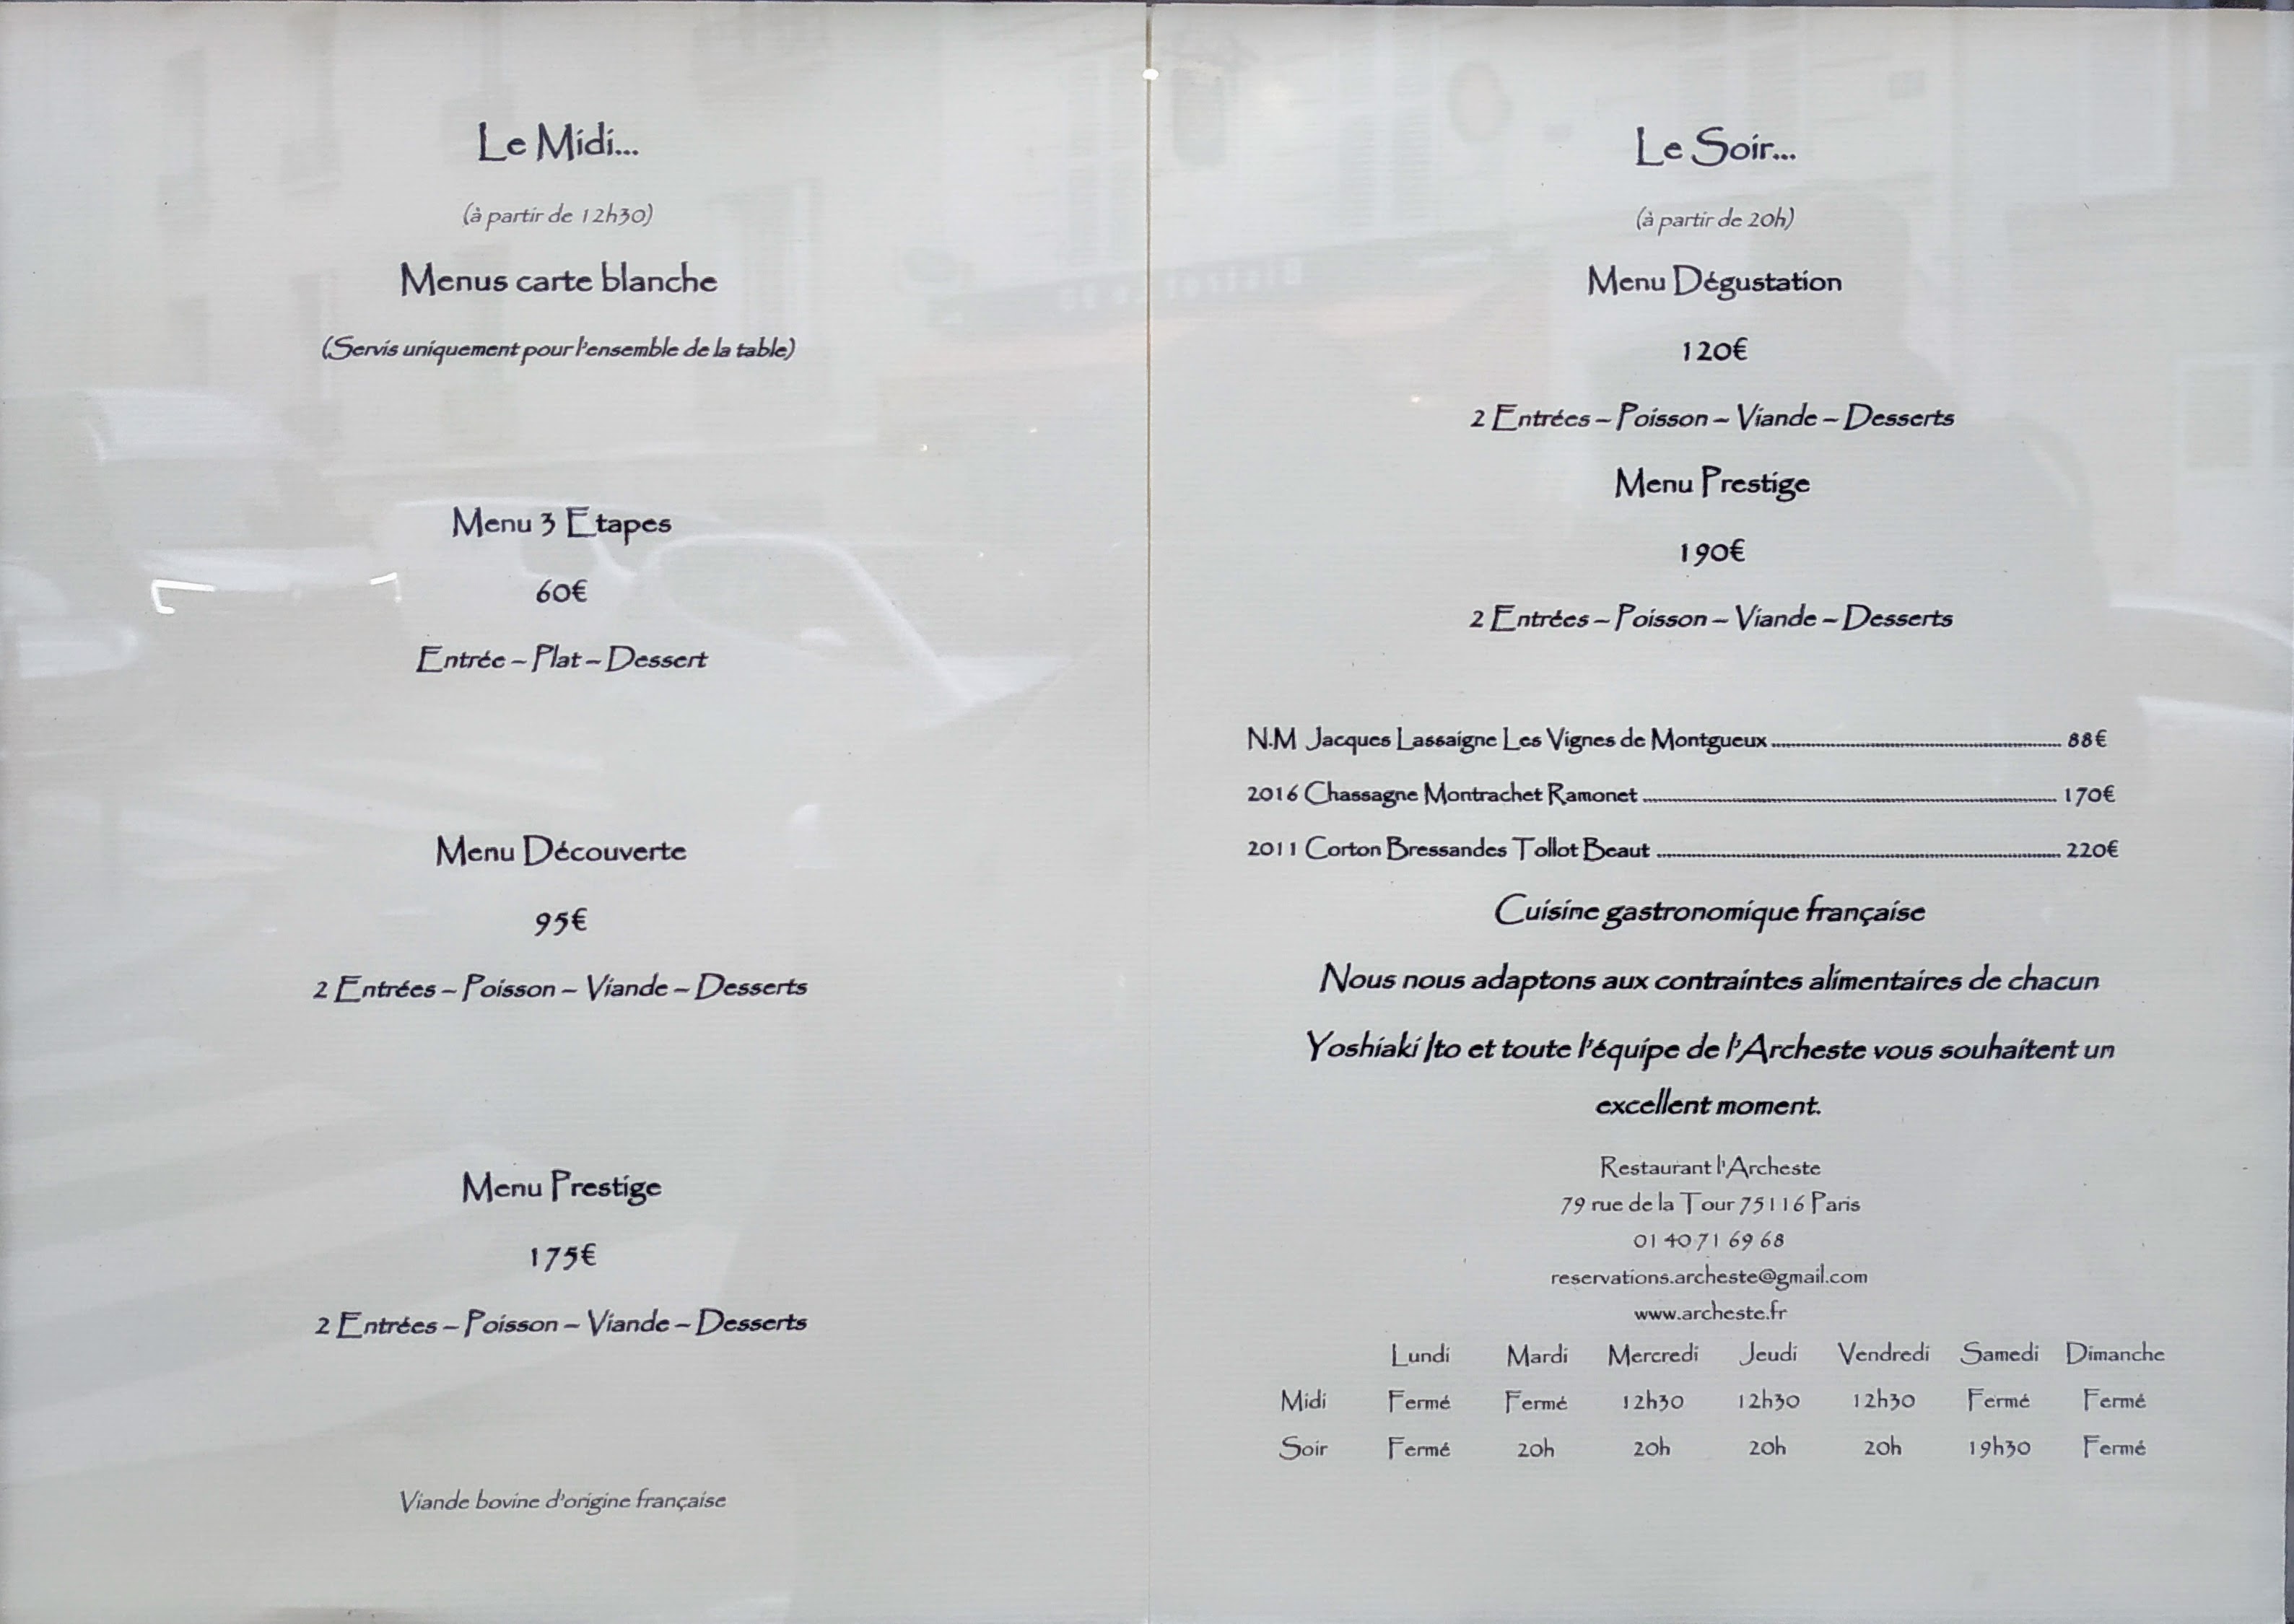 Le Midi...
(à partir de 12h30)
Menus carte blanche
(Servis uniquement pour l'ensemble de la table)
Menu 3 Etapes
60€
Entrée – Plat – Dessert
Menu Découverte
95€
2 Entrées – Poisson – Viande – Desserts
Menu Prestige
175€
2 Entrées – Poisson – Viande – Desserts
Viande bovine d'origine française
Le Soir...
(à partir de 20h)
Menu Dégustation
120€
2 Entrées – Poisson – Viande – Desserts
Menu Prestige
190€
2 Entrées – Poisson – Viande – Desserts
N.M Jacques Lassaigne Les Vignes de Montgueux ........ 88€
2016 Chassagne Montrachet Ramonet ........ 170€
2011 Corton Bressandes Tollot Beaut ........ 220€
Cuisine gastronomique française
Nous nous adaptons aux contraintes alimentaires de chacun
Yoshiaki Ito et toute l'équipe de l'Archeste vous souhaitent un
excellent moment.
Restaurant l'Archeste
79 rue de la Tour 75116 Paris
01 40 71 69 68
reservations.archeste@gmail.com
www.archeste.fr
Lundi Mardi Mercredi Jeudi Vendredi Samedi Dimanche
Midi Fermé Fermé 12h30 12h30 12h30 Fermé Fermé
Soir Fermé 20h 20h 20h 20h 19h30 Fermé